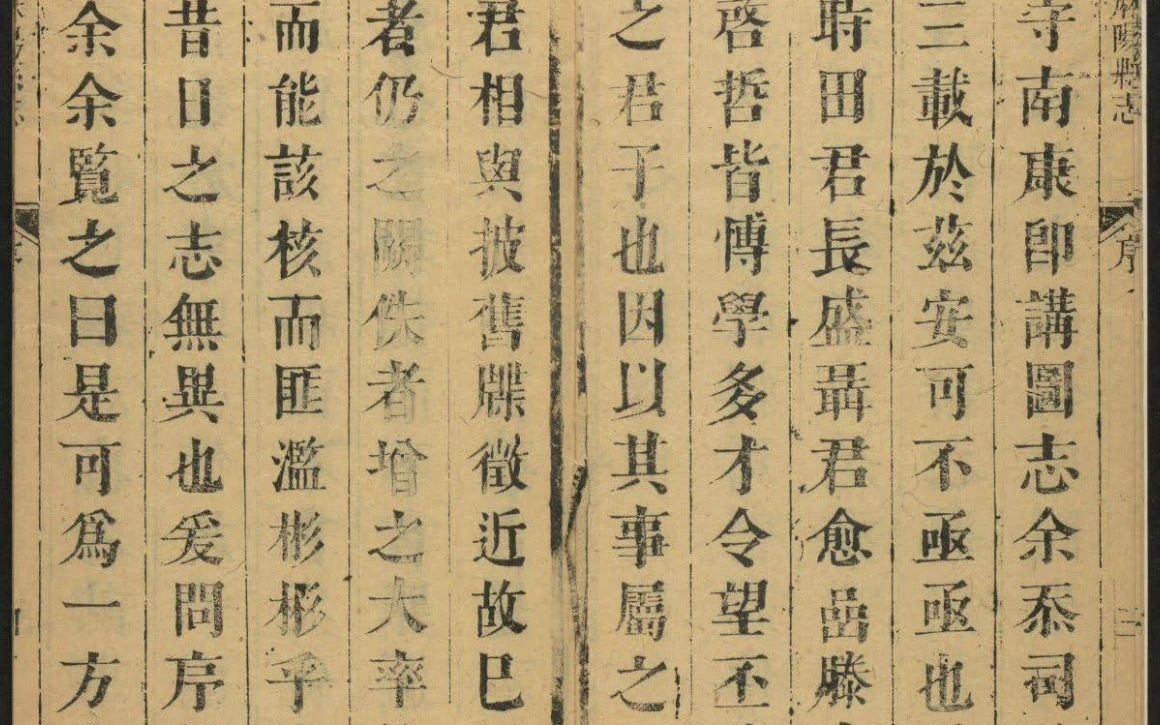 麻陽縣志
序
二
守南康卽講圖志余忝司
三載於茲安可不亟亟也
時田君長盛聶君愈嵒滕
啓哲皆博學多才令望丕
之君子也因以其事屬之
君相與披舊牒徵近故巳
者仍之闕佚者增之大率
而能該核而匪濫彬彬乎
昔日之志無異也爰問序
余余覽之曰是可爲一方